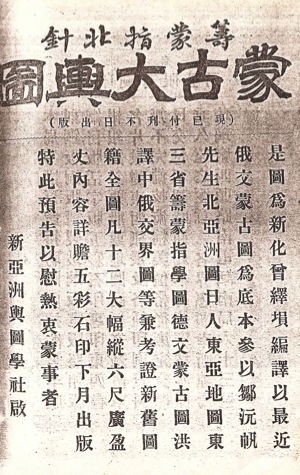 籌蒙指北針
蒙古大輿圖
(現已付刊不日出版)
是圖爲新化曾繹塤編譯以最近
俄文蒙古圖爲底本參以鄒沅帆
先生北亞洲圖日人東亞地圖東
三省籌蒙指學圖德文蒙古圖洪
譯中俄交界圖等兼考證新舊圖
籍全圖凡十二大幅縱六尺廣盈
丈內容詳贍五彩石印下月出版
特此預告以慰熱衷蒙事者
新亞洲輿圖學社啟